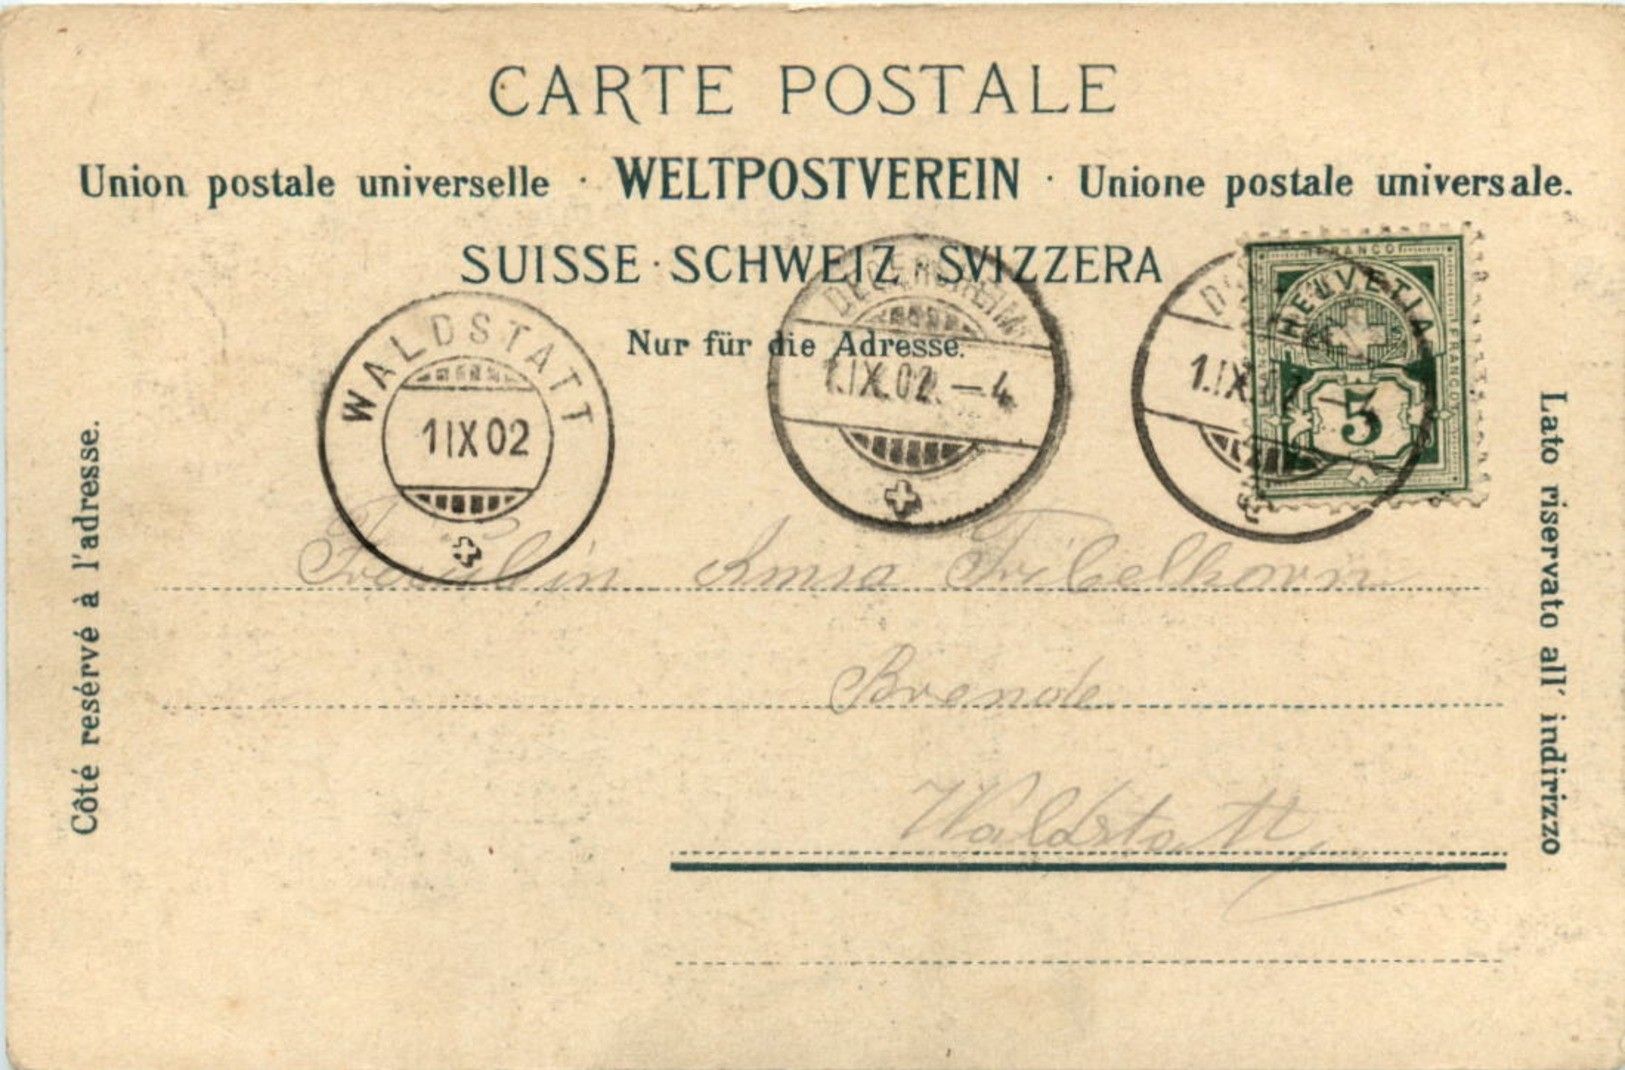 CARTE POSTALE
Union postale universelle · WELTPOSTVEREIN · Unione postale universale.
SUISSE · SCHWEIZ SVIZZERA
Nur für die Adresse.
WALDSTATT
1 IX 02
DEGERSHEIM
1.IX.02.–4
1.IX.02.–
FRANCO
HELVETIA
FRANCO
5
Côté resérvé à l'adresse.
Lato riservato all' indirizzo
Fräulein Anna Fitzelkorn
Waldstatt